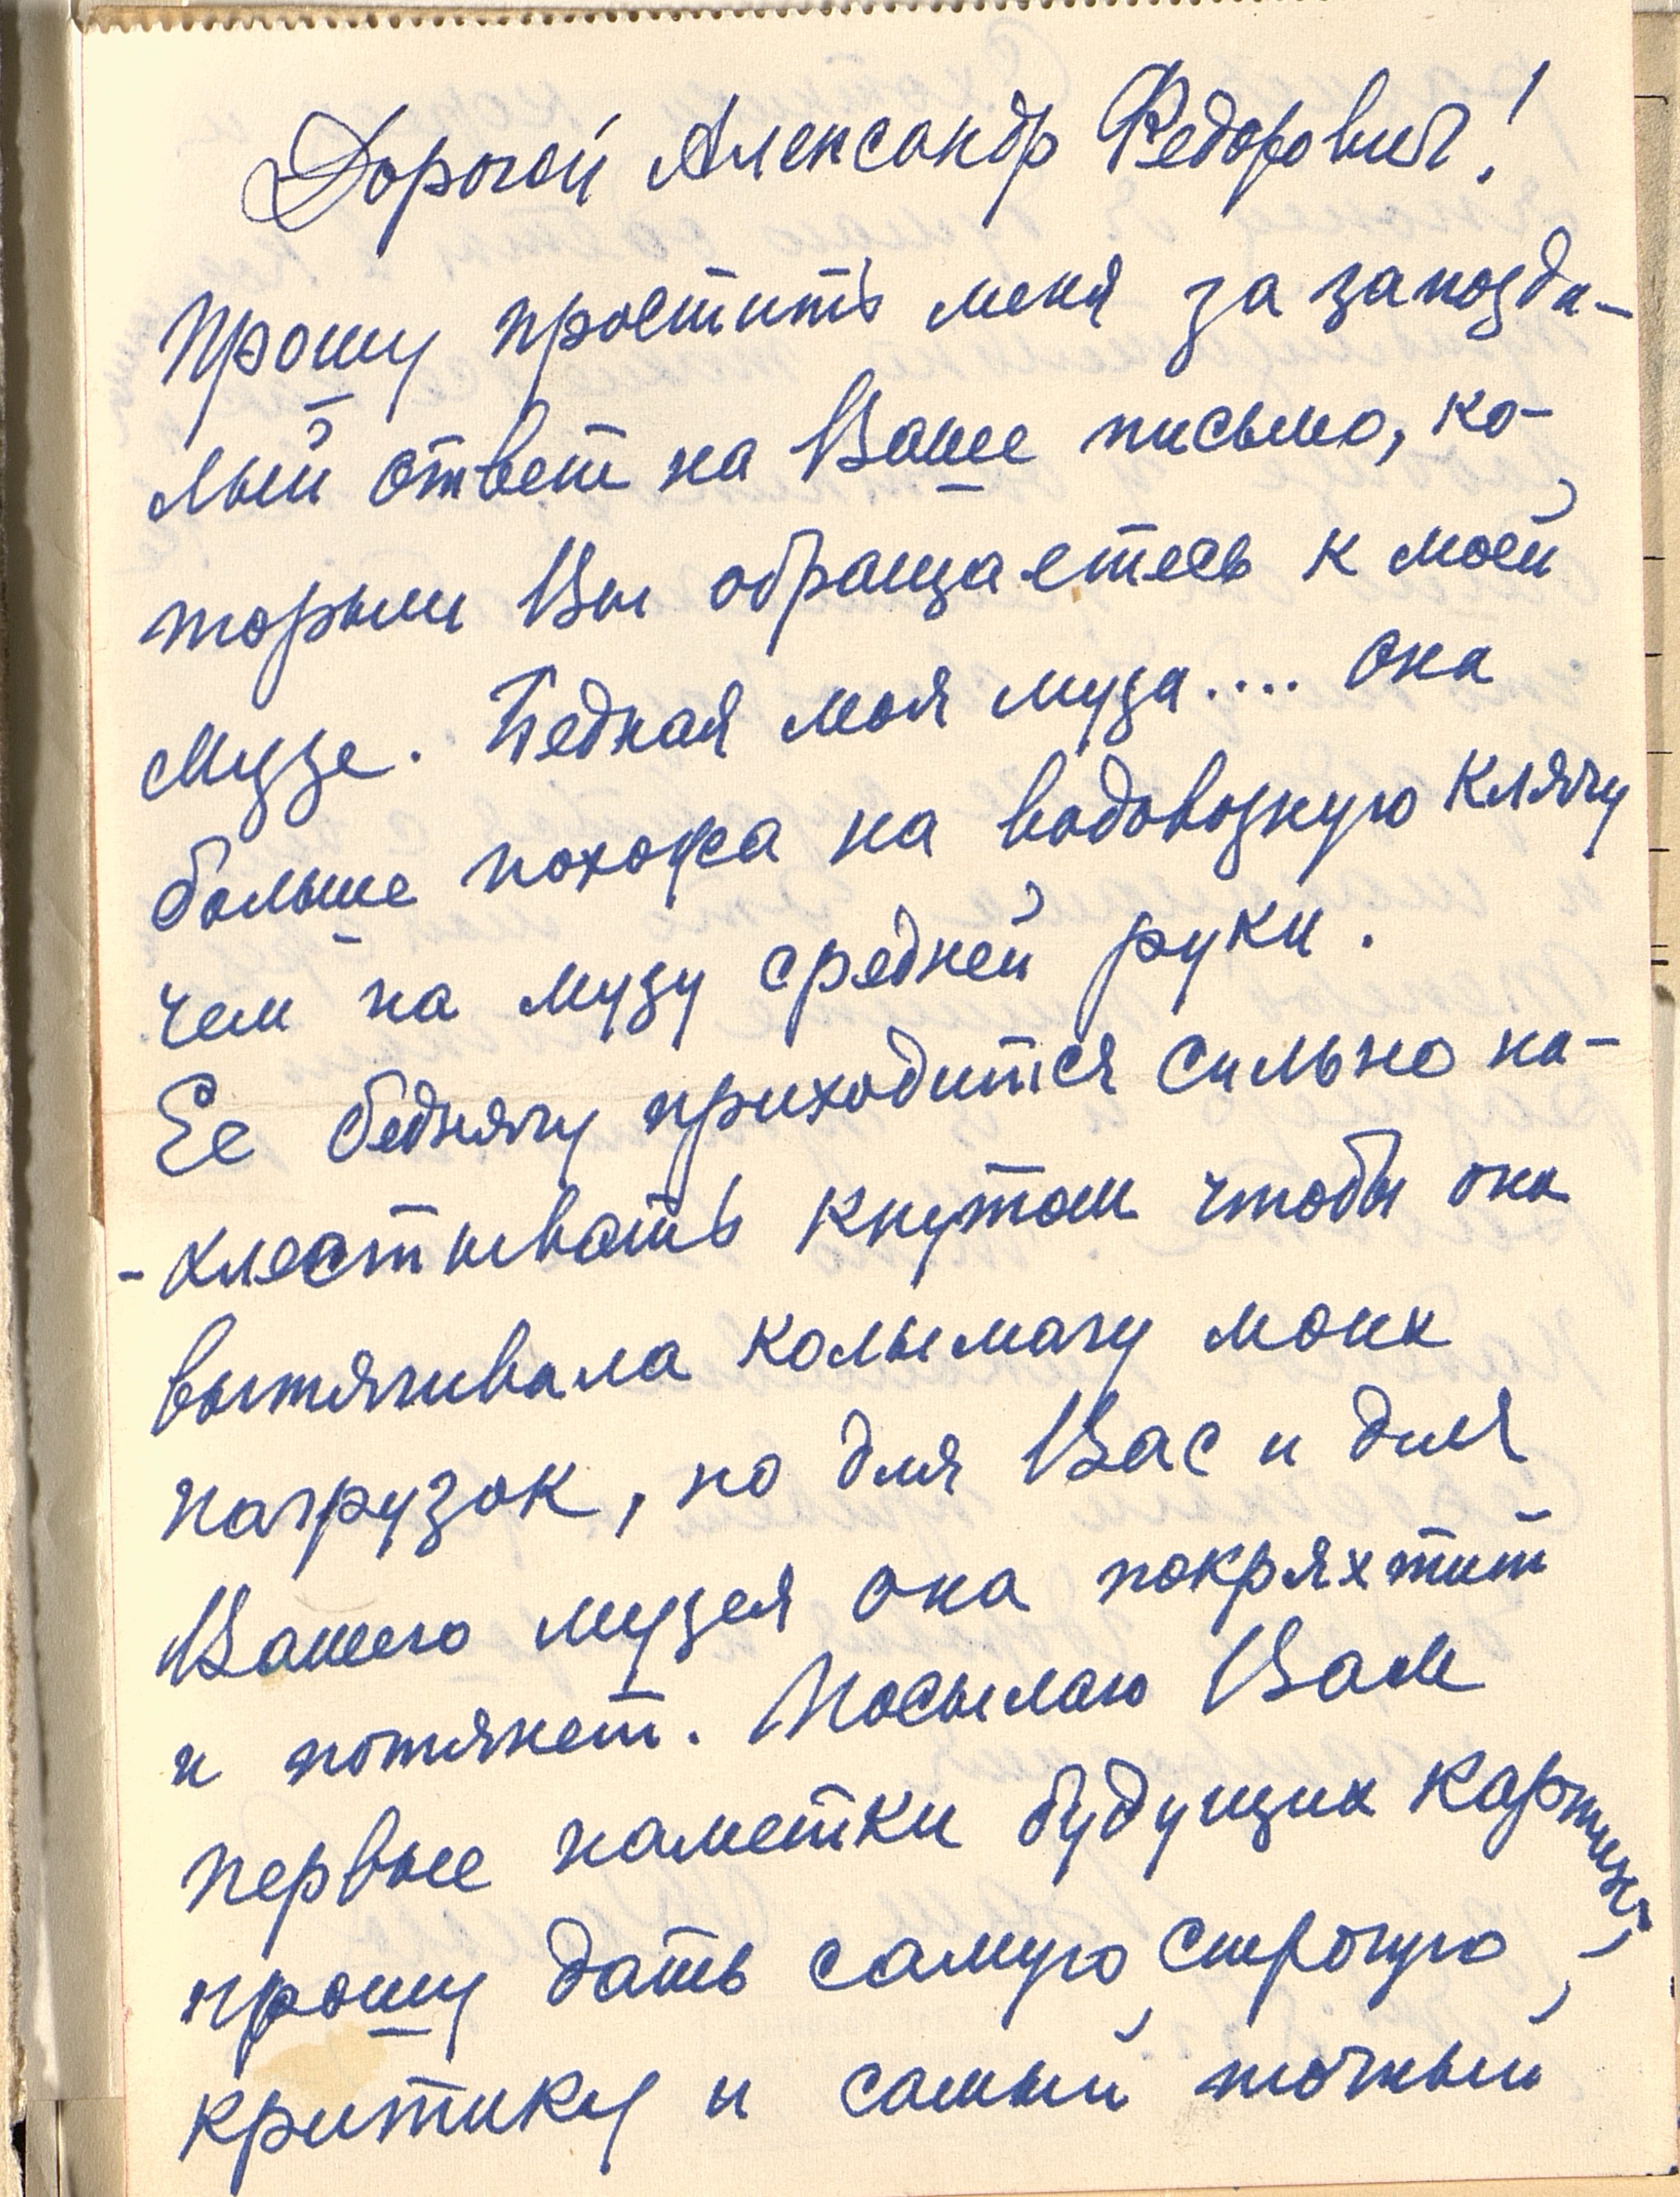 Дорогой Александр Федорович!
Прошу простить меня за запозда-
лый ответ на Ваше письмо, ко-
торым Вы обращаетесь к моей
музе. Бедная моя муза.... она
больше похожа на водовозную клячу
чем на музу средней руки.
Ее беднягу приходится сильно на-
-хлестывать кнутом чтобы она
вытягивала колымагу моих
нагрузок, но для Вас и для
Вашего музея она покряхтит
и потянет. Посылаю Вам
первые наметки будущих картин,
прошу дать самую, строгую,
критику и самый точный